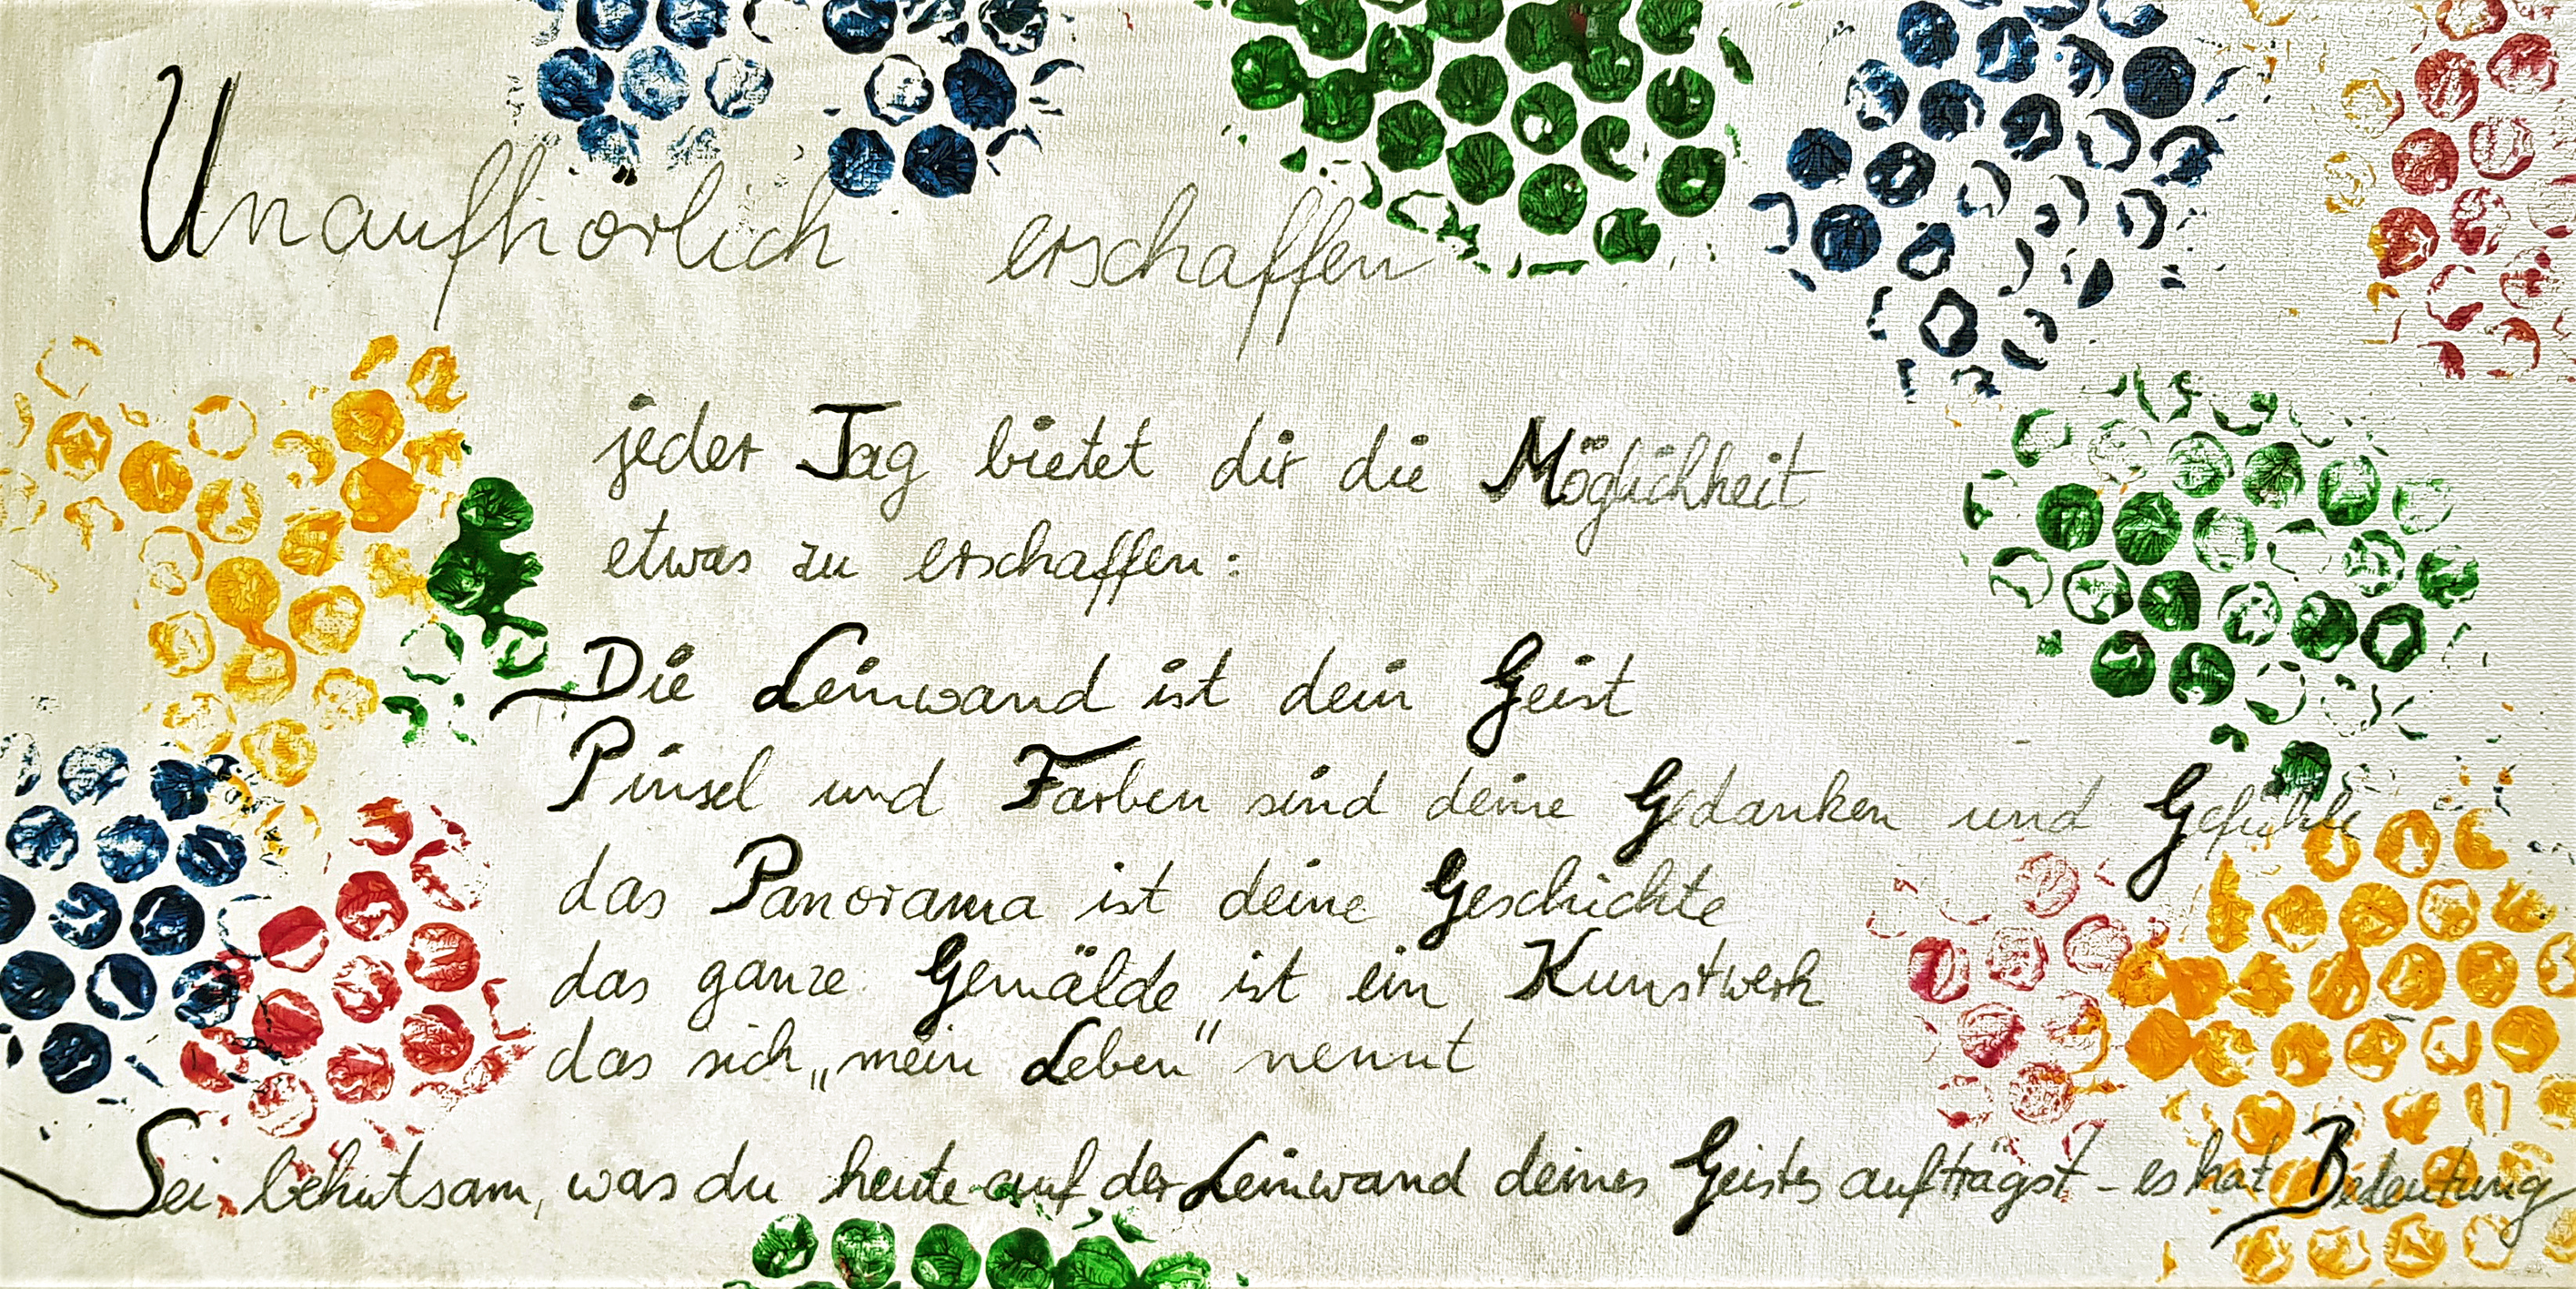 Unaufhörlich erschaffen
jeder Tag bietet dir die Möglichkeit
etwas zu erschaffen:
Die Leinwand ist dein Geist
Pinsel und Farben sind deine Gedanken und Gefühle
das Panorama ist deine Geschichte
das ganze Gemälde ist ein Kunstwerk
das sich „mein Leben" nennt
Sei behutsam, was du heute auf der Leinwand deines Geistes aufträgst - es hat Bedeutung